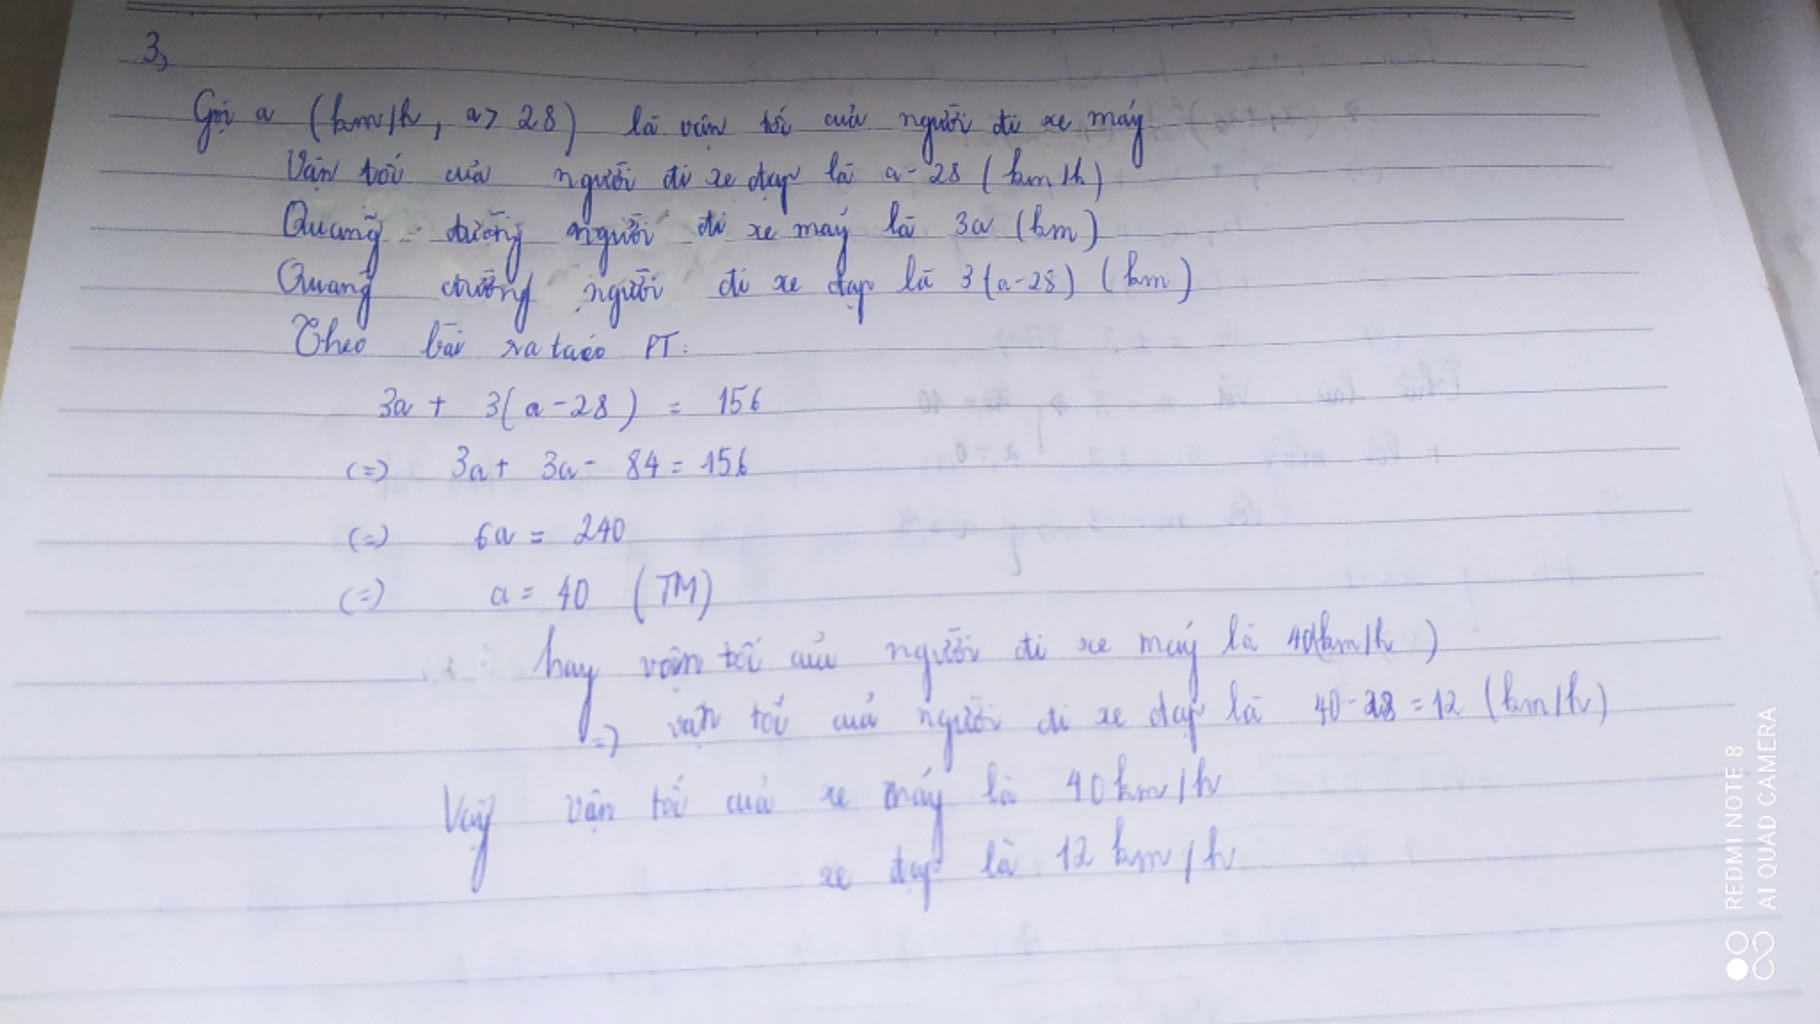 3,
Gọi a (km/h, a > 28) là vận tốc của người đi xe máy
Vận tốc của người đi xe đạp là a - 28 (km/h)
Quãng đường người đi xe máy là 3a (km)
Quãng đường người đi xe đạp là 3(a-28) (km)
Theo bài ra ta có PT:
3a + 3(a-28) = 156
(=) 3a + 3a - 84 = 156
(=) 6a = 240
(=) a = 40 (TM)
hay vận tốc của người đi xe máy là 40(km/h)
=) vận tốc của người đi xe đạp là 40-28 = 12 (km/h)
Vậy vận tốc của xe máy là 40km/h
xe đạp là 12 km/h
REDMI NOTE 8
AI QUAD CAMERA